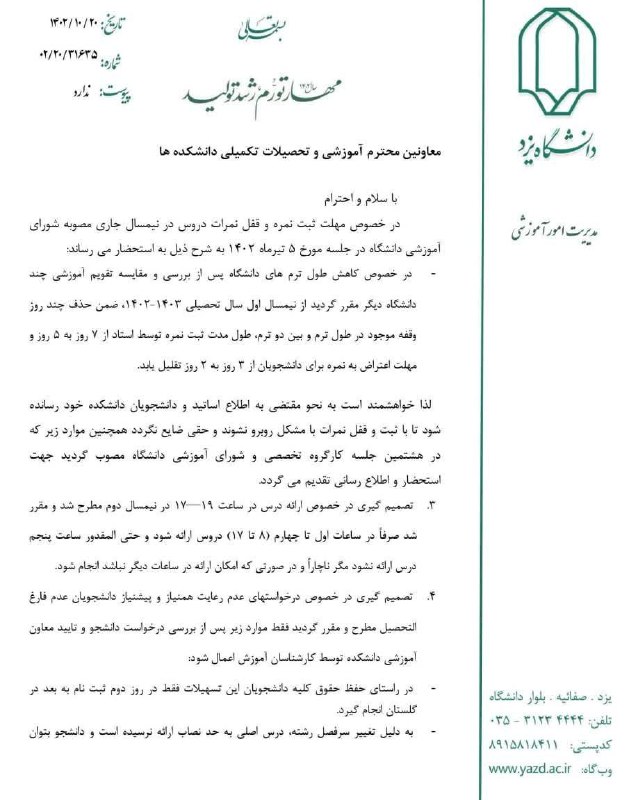 بسمه تعالی
تاریخ: ۱۴۰۲/۱۰/۲۰
شماره: ۰۲/۲۰/۳۱۶۳۵
پیوست: ندارد
مهار تورم، رشد تولید
دانشگاه یزد
مدیریت امور آموزشی
معاونین محترم آموزشی و تحصیلات تکمیلی دانشکده ها
با سلام و احترام
در خصوص مهلت ثبت نمره و قفل نمرات دروس در نیمسال جاری مصوبه شورای
آموزشی دانشگاه در جلسه مورخ ۵ تیرماه ۱۴۰۲ به شرح ذیل به استحضار می رساند:
- در خصوص کاهش طول ترم های دانشگاه پس از بررسی و مقایسه تقویم آموزشی چند
دانشگاه دیگر مقرر گردید از نیمسال اول سال تحصیلی ۱۴۰۳-۱۴۰۲، ضمن حذف چند روز
وقفه موجود در طول ترم و بین دو ترم، طول مدت ثبت نمره توسط استاد از ۷ روز به ۵ روز و
مهلت اعتراض به نمره برای دانشجویان از ۳ روز به ۲ روز تقلیل یابد.
لذا خواهشمند است به نحو مقتضی به اطلاع اساتید و دانشجویان دانشکده خود رسانده
شود تا با ثبت و قفل نمرات با مشکل روبرو نشوند و حقی ضایع نگردد همچنین موارد زیر که
در هشتمین جلسه کارگروه تخصصی و شورای آموزشی دانشگاه مصوب گردید جهت
استحضار و اطلاع رسانی تقدیم می گردد.
۳. تصمیم گیری در خصوص ارائه درس در ساعت ۱۹—۱۷ در نیمسال دوم مطرح شد و مقرر
شد صرفاً در ساعات اول تا چهارم (۸ تا ۱۷) دروس ارائه شود و حتی المقدور ساعت پنجم
درس ارائه نشود مگر ناچاراً و در صورتی که امکان ارائه در ساعات دیگر نباشد انجام شود.
۴. تصمیم گیری در خصوص درخواستهای عدم رعایت همنیاز و پیشنیاز دانشجویان عدم فارغ
التحصیل مطرح و مقرر گردید فقط موارد زیر پس از بررسی درخواست دانشجو و تایید معاون
آموزشی دانشکده توسط کارشناسان آموزش اعمال شود:
- در راستای حفظ حقوق کلیه دانشجویان این تسهیلات فقط در روز دوم ثبت نام به بعد در
گلستان انجام گیرد.
- به دلیل تغییر سرفصل رشته، درس اصلی به حد نصاب ارائه نرسیده است و دانشجو بتوان
یزد . صفائیه . بلوار دانشگاه
تلفن: ۴۴۴۴ ۳۱۲۳ - ۰۳۵
کدپستی: ۸۹۱۵۸۱۸۴۱۱
وب‌گاه: www.yazd.ac.ir